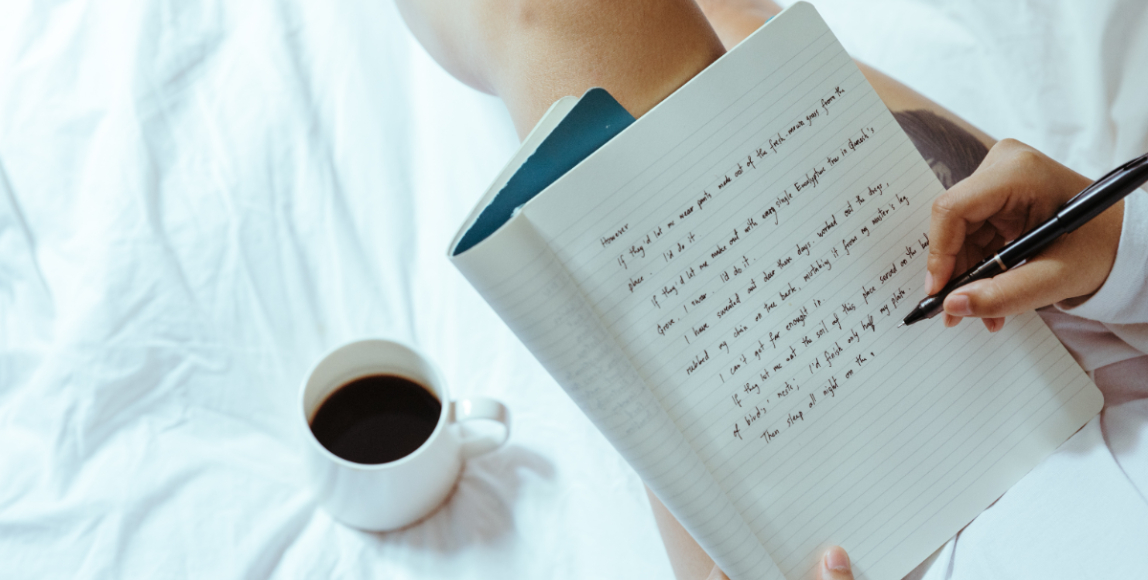 However
If they'd let me wear pants made out of the fresh-marie grass from the
place. I'd do it
If they'd let me make out with every single Eucalyptus tree in Queech's,
Grove. I never. I'd do it.
I have sweated out dear them days, worked out the dregs,
rubbed my chin on tree bark, mistaking it from my master's leg
I can't get far enough in.
If they let me eat the soil of this place served on the bed
of birds', nests', I'd finish only half my plate.
Then sleep all night on the,